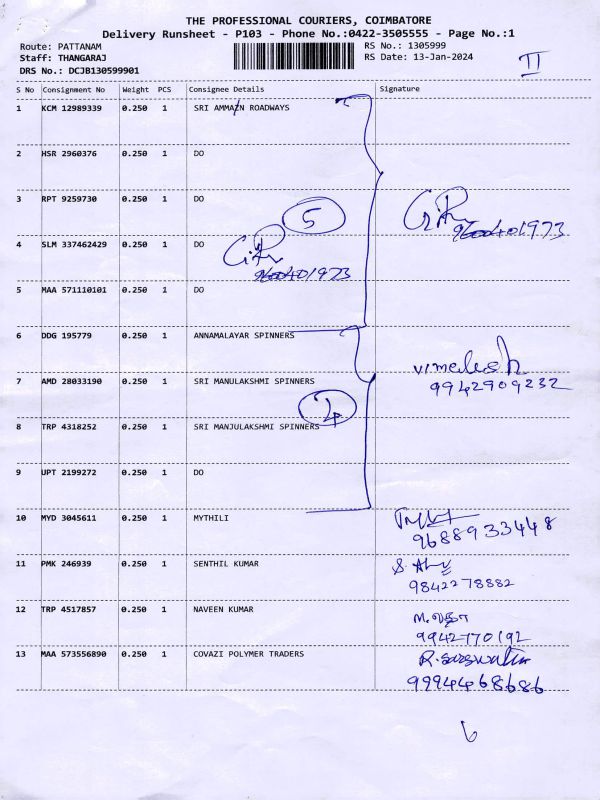 THE PROFESSIONAL COURIERS, COIMBATORE
Delivery Runsheet - P103 - Phone No.:0422-3505555 - Page No.:1
Route: PATTANAM RS No.: 1305999
Staff: THANGARAJ RS Date: 13-Jan-2024
DRS No.: DCJB130599901
II
S No Consignment No Weight PCS Consignee Details Signature
1 KCM 12989339 0.250 1 SRI AMMAIN ROADWAYS
2 HSR 2960376 0.250 1 DO
3 RPT 9259730 0.250 1 DO
5
4 SLM 337462429 0.250 1 DO
5 MAA 571110101 0.250 1 DO
6 DDG 195779 0.250 1 ANNAMALAYAR SPINNERS
vimalesh
7 AMD 28033190 0.250 1 SRI MANULAKSHMI SPINNERS
9942909232
8 TRP 4318252 0.250 1 SRI MANJULAKSHMI SPINNERS
9 UPT 2199272 0.250 1 DO
10 MYD 3045611 0.250 1 MYTHILI
9688933448
11 PMK 246939 0.250 1 SENTHIL KUMAR
9842278882
12 TRP 4517857 0.250 1 NAVEEN KUMAR
9942770192
13 MAA 573556890 0.250 1 COVAZI POLYMER TRADERS
R. saraswathi
9994468686
6